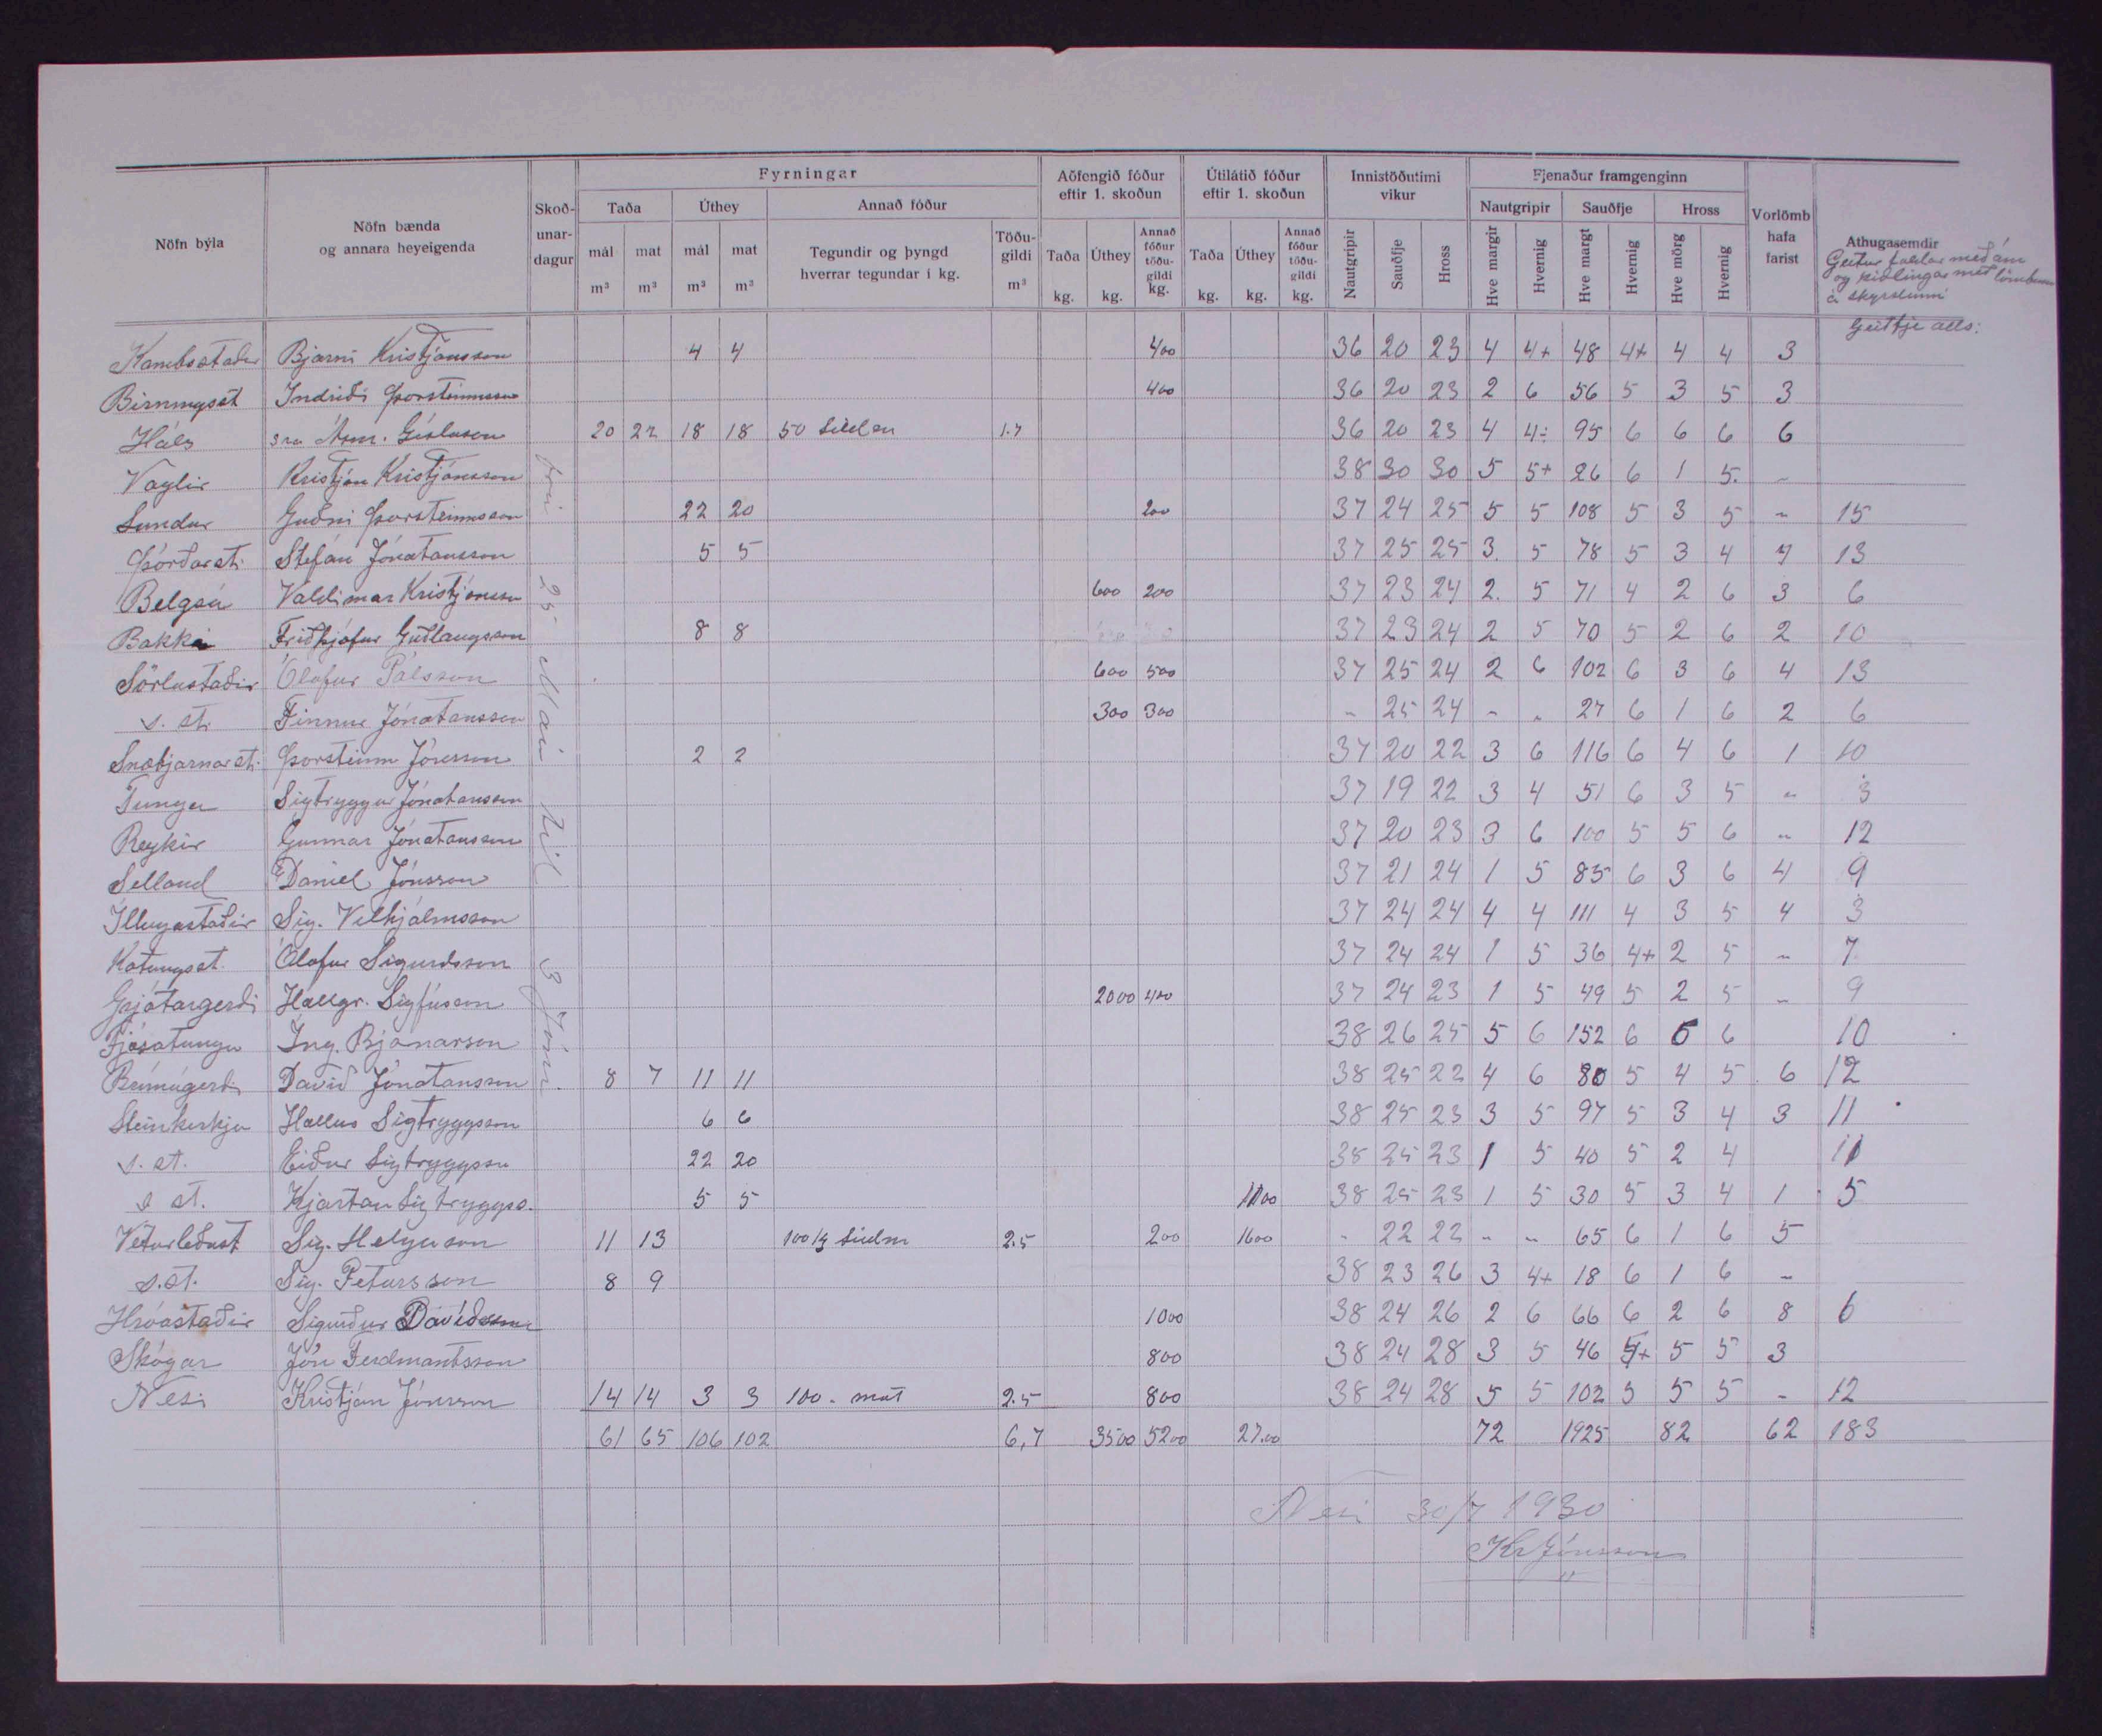 Nöfn býla | Nöfn bænda og annara heyeigenda | Skoðunardagur | Fyrningar | Aðfengið fóður eftir 1. skoðun | Útilátið fóður eftir 1. skoðun | Innistöðutími vikur | Fjenaður framgenginn | Vorlömb hafa farist | Athugasemdir
Taða | Úthey | Annað fóður | Nautgripir | Sauðfje | Hross
mál m³ | mat m³ | mál m³ | mat m³ | Tegundir og þyngd hverrar tegundar í kg. | Töðugildi m³ | Taða kg. | Úthey kg. | Annað fóður töðugildi kg. | Taða kg. | Úthey kg. | Annað fóður töðugildi kg. | Nautgripir | Sauðfje | Hross | Hve margir | Hvernig | Hve margt | Hvernig | Hve mörg | Hvernig
Geitur taldar með ám
og kiðlingar með lömbum
á skýrslunni
Geitfje alls:
Kambsstaðir | Bjarni Kristjánsson | 4 | 4 | 400 | 36 | 20 | 23 | 4 | 4+ | 48 | 4+ | 4 | 4 | 3
Birningsst | Indriði Þorsteinsson | 400 | 36 | 20 | 23 | 2 | 6 | 56 | 5 | 3 | 5 | 3
Háls | sra Ásm. Gíslason | 20 | 22 | 18 | 18 | 50 síldar | 1.7 | 36 | 20 | 23 | 4 | 4÷ | 95 | 6 | 6 | 6 | 6
Vaglir | Kristján Kristjánsson | 38 | 30 | 30 | 5 | 5+ | 26 | 6 | 1 | 5. | -
Lundur | Guðni Þorsteinsson | 22 | 20 | 200 | 37 | 24 | 25 | 5 | 5 | 108 | 5 | 3 | 5 | - | 15
Þórðarst. | Stefán Jónatansson | 5 | 5 | 37 | 25 | 25 | 3. | 5 | 78 | 5 | 3 | 4 | 7 | 13
Belgsá | Valdimar Kristjánsson | 600 | 200 | 37 | 23 | 24 | 2. | 5 | 71 | 4 | 2 | 6 | 3 | 6
Bakki | Friðþjófur Guðlaugsson | 8 | 8 | 37 | 23 | 24 | 2 | 5 | 70 | 5 | 2 | 6 | 2 | 10
Sörlastaðir | Ólafur Pálsson | 600 | 500 | 37 | 25 | 24 | 2 | 6 | 102 | 6 | 3 | 6 | 4 | 13
s. st. | Finnur Jónatansson | 300 | 300 | - | 25 | 24 | - | - | 27 | 6 | 1 | 6 | 2 | 6
Snæbjarnarst. | Þorsteinn Jónsson | 2 | 2 | 37 | 20 | 22 | 3 | 6 | 116 | 6 | 4 | 6 | 1 | 10
Tunga | Sigtryggur Jónatansson | 37 | 19 | 22 | 3 | 4 | 51 | 6 | 3 | 5 | - | 3
Reykir | Gunnar Jónatansson | 37 | 20 | 23 | 3 | 6 | 100 | 5 | 5 | 6 | - | 12
Selland | Daníel Jónsson | 37 | 21 | 24 | 1 | 5 | 85 | 6 | 3 | 6 | 4 | 9
Illugastaðir | Sig. Vilhjálmsson | 37 | 24 | 24 | 4 | 4 | 111 | 4 | 3 | 5 | 4 | 3
Kotungsst. | Ólafur Sigurdsson | 37 | 24 | 24 | 1 | 5 | 36 | 4+ | 2 | 5 | - | 7
Grjótargerði | Hallgr. Sigfússon | 2000 | 400 | 37 | 24 | 23 | 1 | 5 | 49 | 5 | 2 | 5 | - | 9
Fjósatunga | Ing. Bjarnarson | 38 | 26 | 25 | 5 | 6 | 152 | 6 | 6 | 6 | 10
Brúnagerði | Davíð Jónatansson | 8 | 7 | 11 | 11 | 38 | 25 | 22 | 4 | 6 | 80 | 5 | 4 | 5 | 6 | 12
Steinkirkja | Hallur Sigtryggsson | 6 | 6 | 38 | 25 | 23 | 3 | 5 | 97 | 5 | 3 | 4 | 3 | 11
s. st. | Eiður Sigtryggsson | 22 | 20 | 38 | 25 | 23 | 1 | 5 | 40 | 5 | 2 | 4 | 11
s st. | Kjartan Sigtryggss. | 5 | 5 | 1100 | 38 | 25 | 23 | 1 | 5 | 30 | 5 | 3 | 4 | 1 | 5
Veturliðast | Sig. Helgason | 11 | 13 | 100 kg síldm | 2.5 | 200 | 1600 | - | 22 | 22 | - | - | 65 | 6 | 1 | 6 | 5
s.st. | Sig. Petursson | 8 | 9 | 38 | 23 | 26 | 3 | 4+ | 18 | 6 | 1 | 6 | -
Hróastaðir | Sigurður Davíðsson | 1000 | 38 | 24 | 26 | 2 | 6 | 66 | 6 | 2 | 6 | 8 | 6
Skógar | Jón Ferdinantsson | 800 | 38 | 24 | 28 | 3 | 5 | 46 | 4+ | 5 | 5 | 3
Nesi | Kristján Jónsson | 14 | 14 | 3 | 3 | 100 - mat | 2.5 | 800 | 38 | 24 | 28 | 5 | 5 | 102 | 5 | 5 | 5 | - | 12
61 | 65 | 106 | 102 | 6,7 | 3500 | 5200 | 27.00 | 72 | 1925 | 82 | 62 | 183
frá 25 Maí til 3 Júní
Nesi 30/7 1930
Kr Jónsson